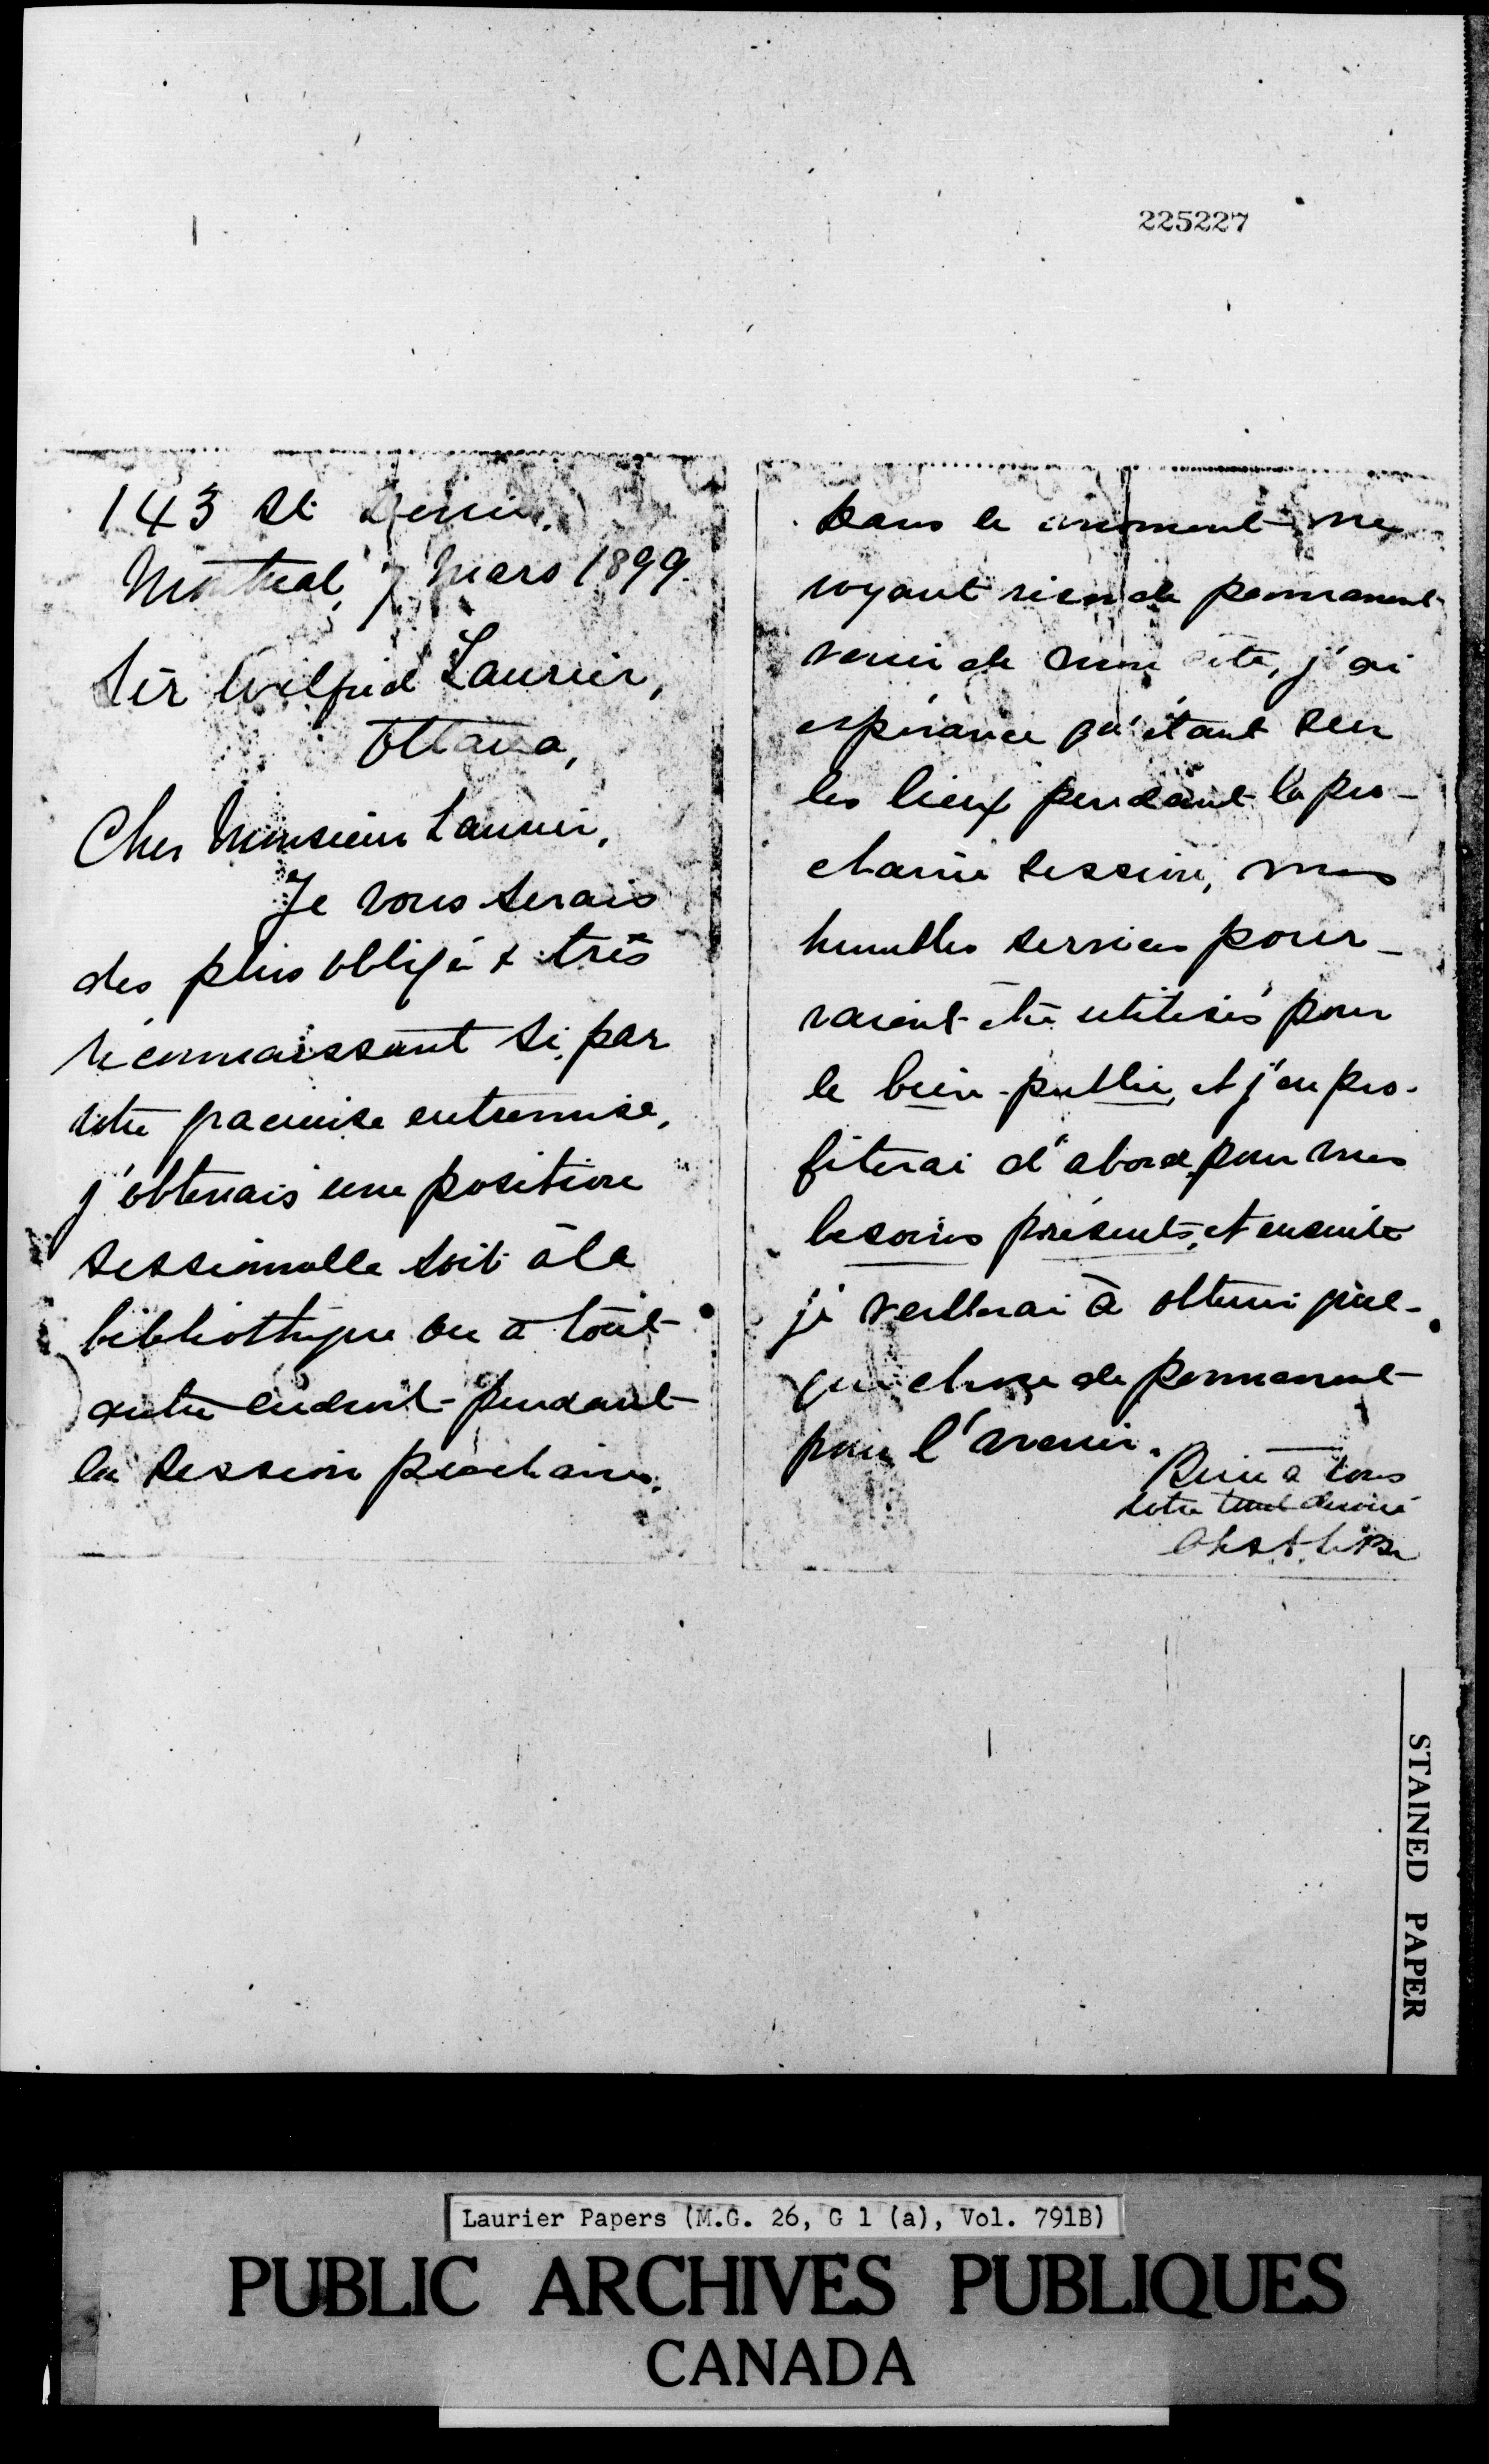 225227
143 St Denis.
Montreal, 7 Mars 1899.
Sir Wilfrid Laurier,
Ottawa,
Cher Monsieur Laurier,
Je vous serais
des plus obligé & très
réconnaissant si, par
votre gracieuse entremise,
j'obtenais une position
sessionnelle soit à la
bibliothèque ou à tout
autre endroit pendant
la session prochaine.
Dans le moment ne
voyant rien de permanent
venir de mon côté, j'ai
espérance qu'étant sur
les lieux pendant la pro-
chaine session, mes
humbles services pour-
raient être utilisés pour
le bien-public, et j'en pro-
fiterai d'abord pour mes
besoins présents, et ensuite
je veillerai à obtenir quel-
que chose de permanent
pour l'avenir.
Bien à vous
Votre tout dévoué
STAINED PAPER
Laurier Papers (M.G. 26, G 1 (a), Vol. 791B)
PUBLIC ARCHIVES PUBLIQUES
CANADA